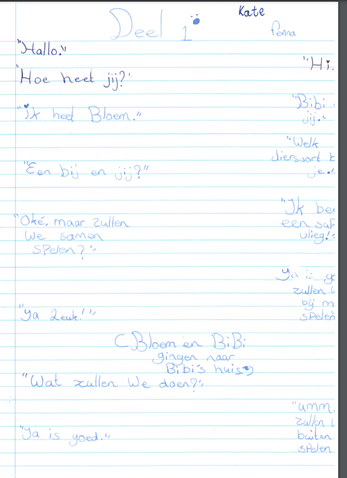 Kate
Deel 1
"Hallo."
"Hi.
"Hoe heet jij?"
"Bibi
jij."
"Ik heet Bloem."
"Welk
diersoort
je."
"Een bij en jij?"
"Ik
een
vlieg!"
"Oké, maar zullen
We samen
spelen?"
Ya is
zullen
bij
spelen
"Ya leuk!"
(Bloen en BiBi
gingen naar
Bibi's huis)
"Wat zullen We doen?"
"umm.
zullen
buiten
spelen
"Ya is goed."